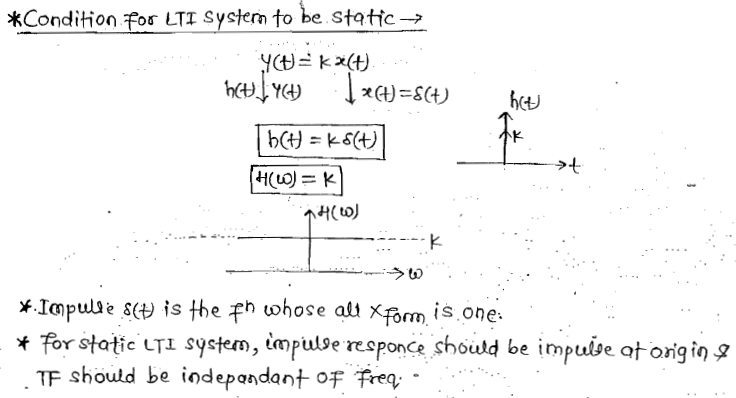 *Condition for LTI System to be static →
y(t) = k x(t)
h(t) ↓ y(t) ↓ x(t) = δ(t)
h(t)
h(t) = k δ(t)
k
t
H(ω) = k
H(ω)
k
ω
* Impulse δ(t) is the fn whose all Xform is one.
* for static LTI system, impulse responce should be impulse at origin &
TF should be indepandant of freq.